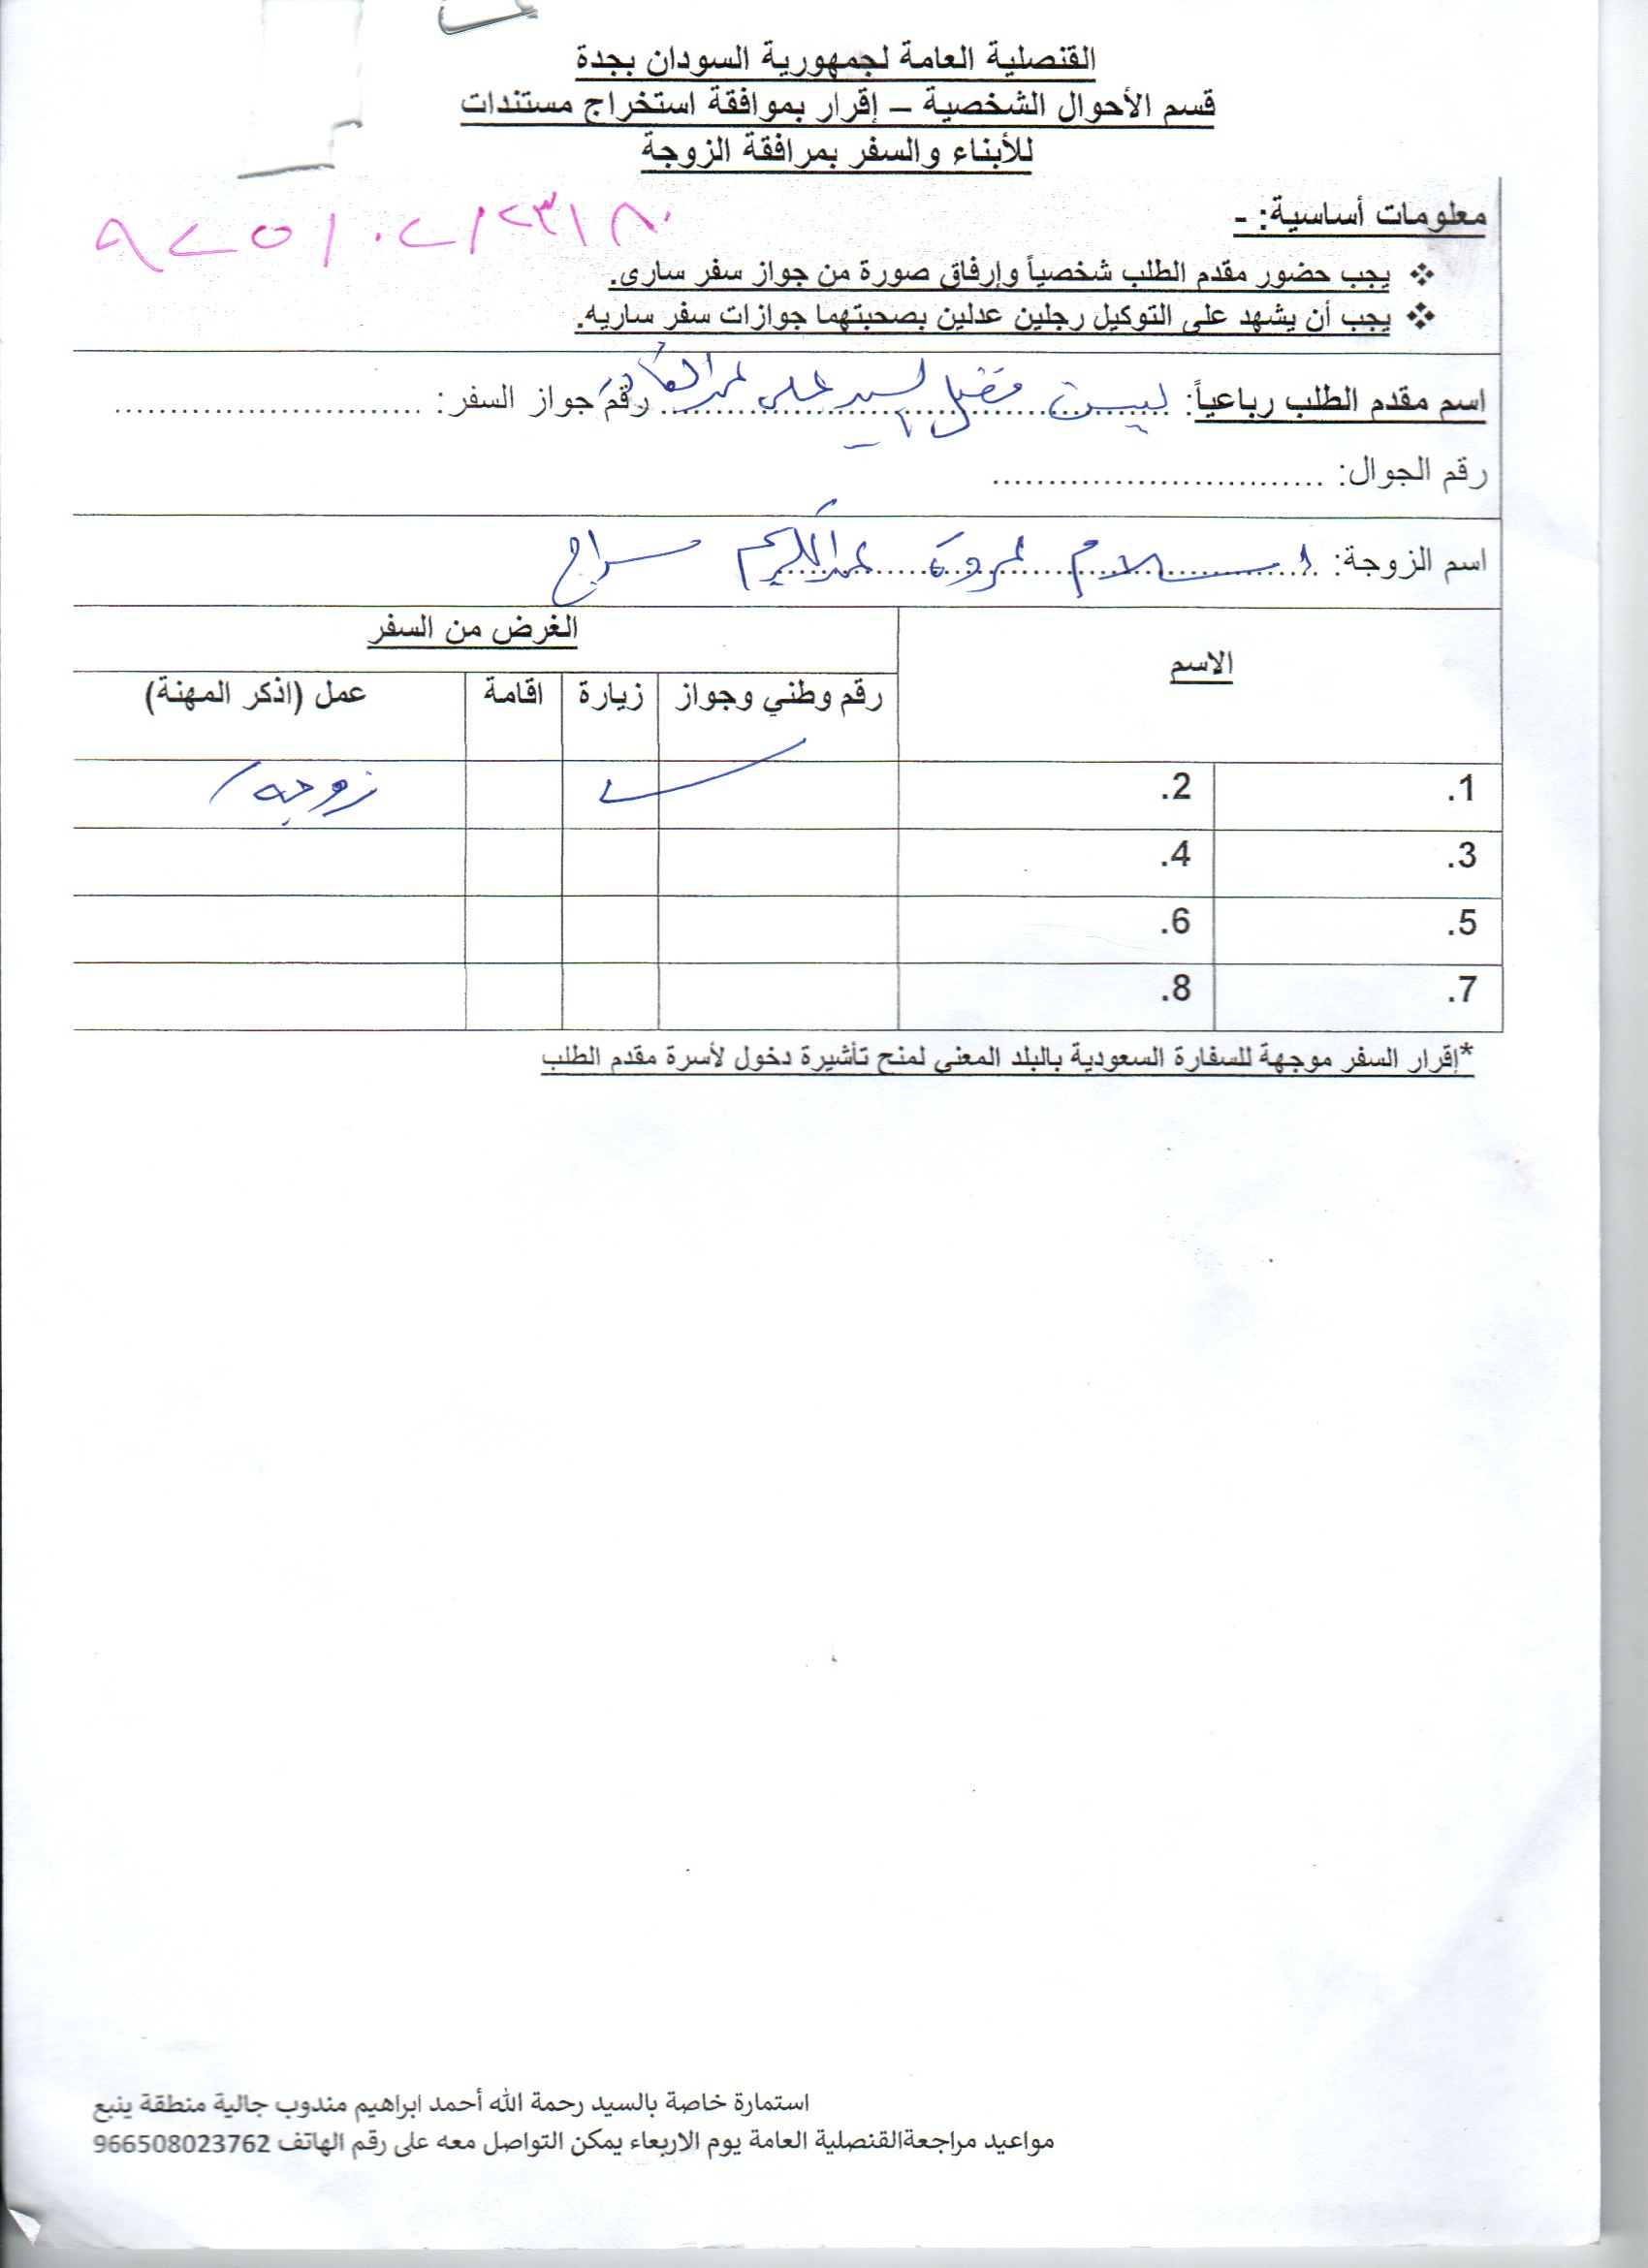 القنصلية العامة لجمهورية السودان بجدة
قسم الأحوال الشخصية – إقرار بموافقة استخراج مستندات
للأبناء والسفر بمرافقة الزوجة
معلومات أساسية: -
❖ يجب حضور مقدم الطلب شخصياً وإرفاق صورة من جواز سفر سارى.
❖ يجب أن يشهد على التوكيل رجلين عدلين بصحبتهما جوازات سفر ساريه.
اسم مقدم الطلب رباعياً: السيد على رقم جواز السفر: ............................
رقم الجوال: ..............................
اسم الزوجة: عبدالكريم سراج
الغرض من السفر
الاسم
رقم وطني وجواز زيارة اقامة عمل (اذكر المهنة)
1. 2. زوجه
3. 4.
5. 6.
7. 8.
*إقرار السفر موجهة للسفارة السعودية بالبلد المعني لمنح تأشيرة دخول لأسرة مقدم الطلب
استمارة خاصة بالسيد رحمة الله أحمد ابراهيم مندوب جالية منطقة ينبع
مواعيد مراجعةالقنصلية العامة يوم الاربعاء يمكن التواصل معه على رقم الهاتف 966508023762